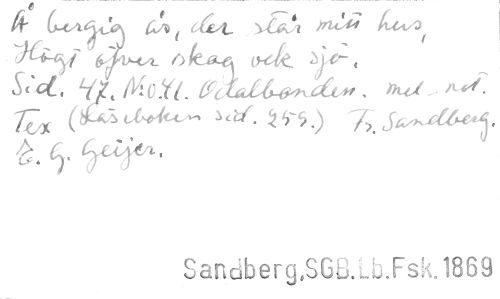 Å bergig ås, der står mitt hus,
Högt öfver skog ock sjö.
Sid. 47. N:o.41. Odalbonden. med not.
Tex (Läseboken sid. 259.) Fr. Sandberg.
E. G. Geijer.
Sandberg.SGB.Lb.Fsk.1869